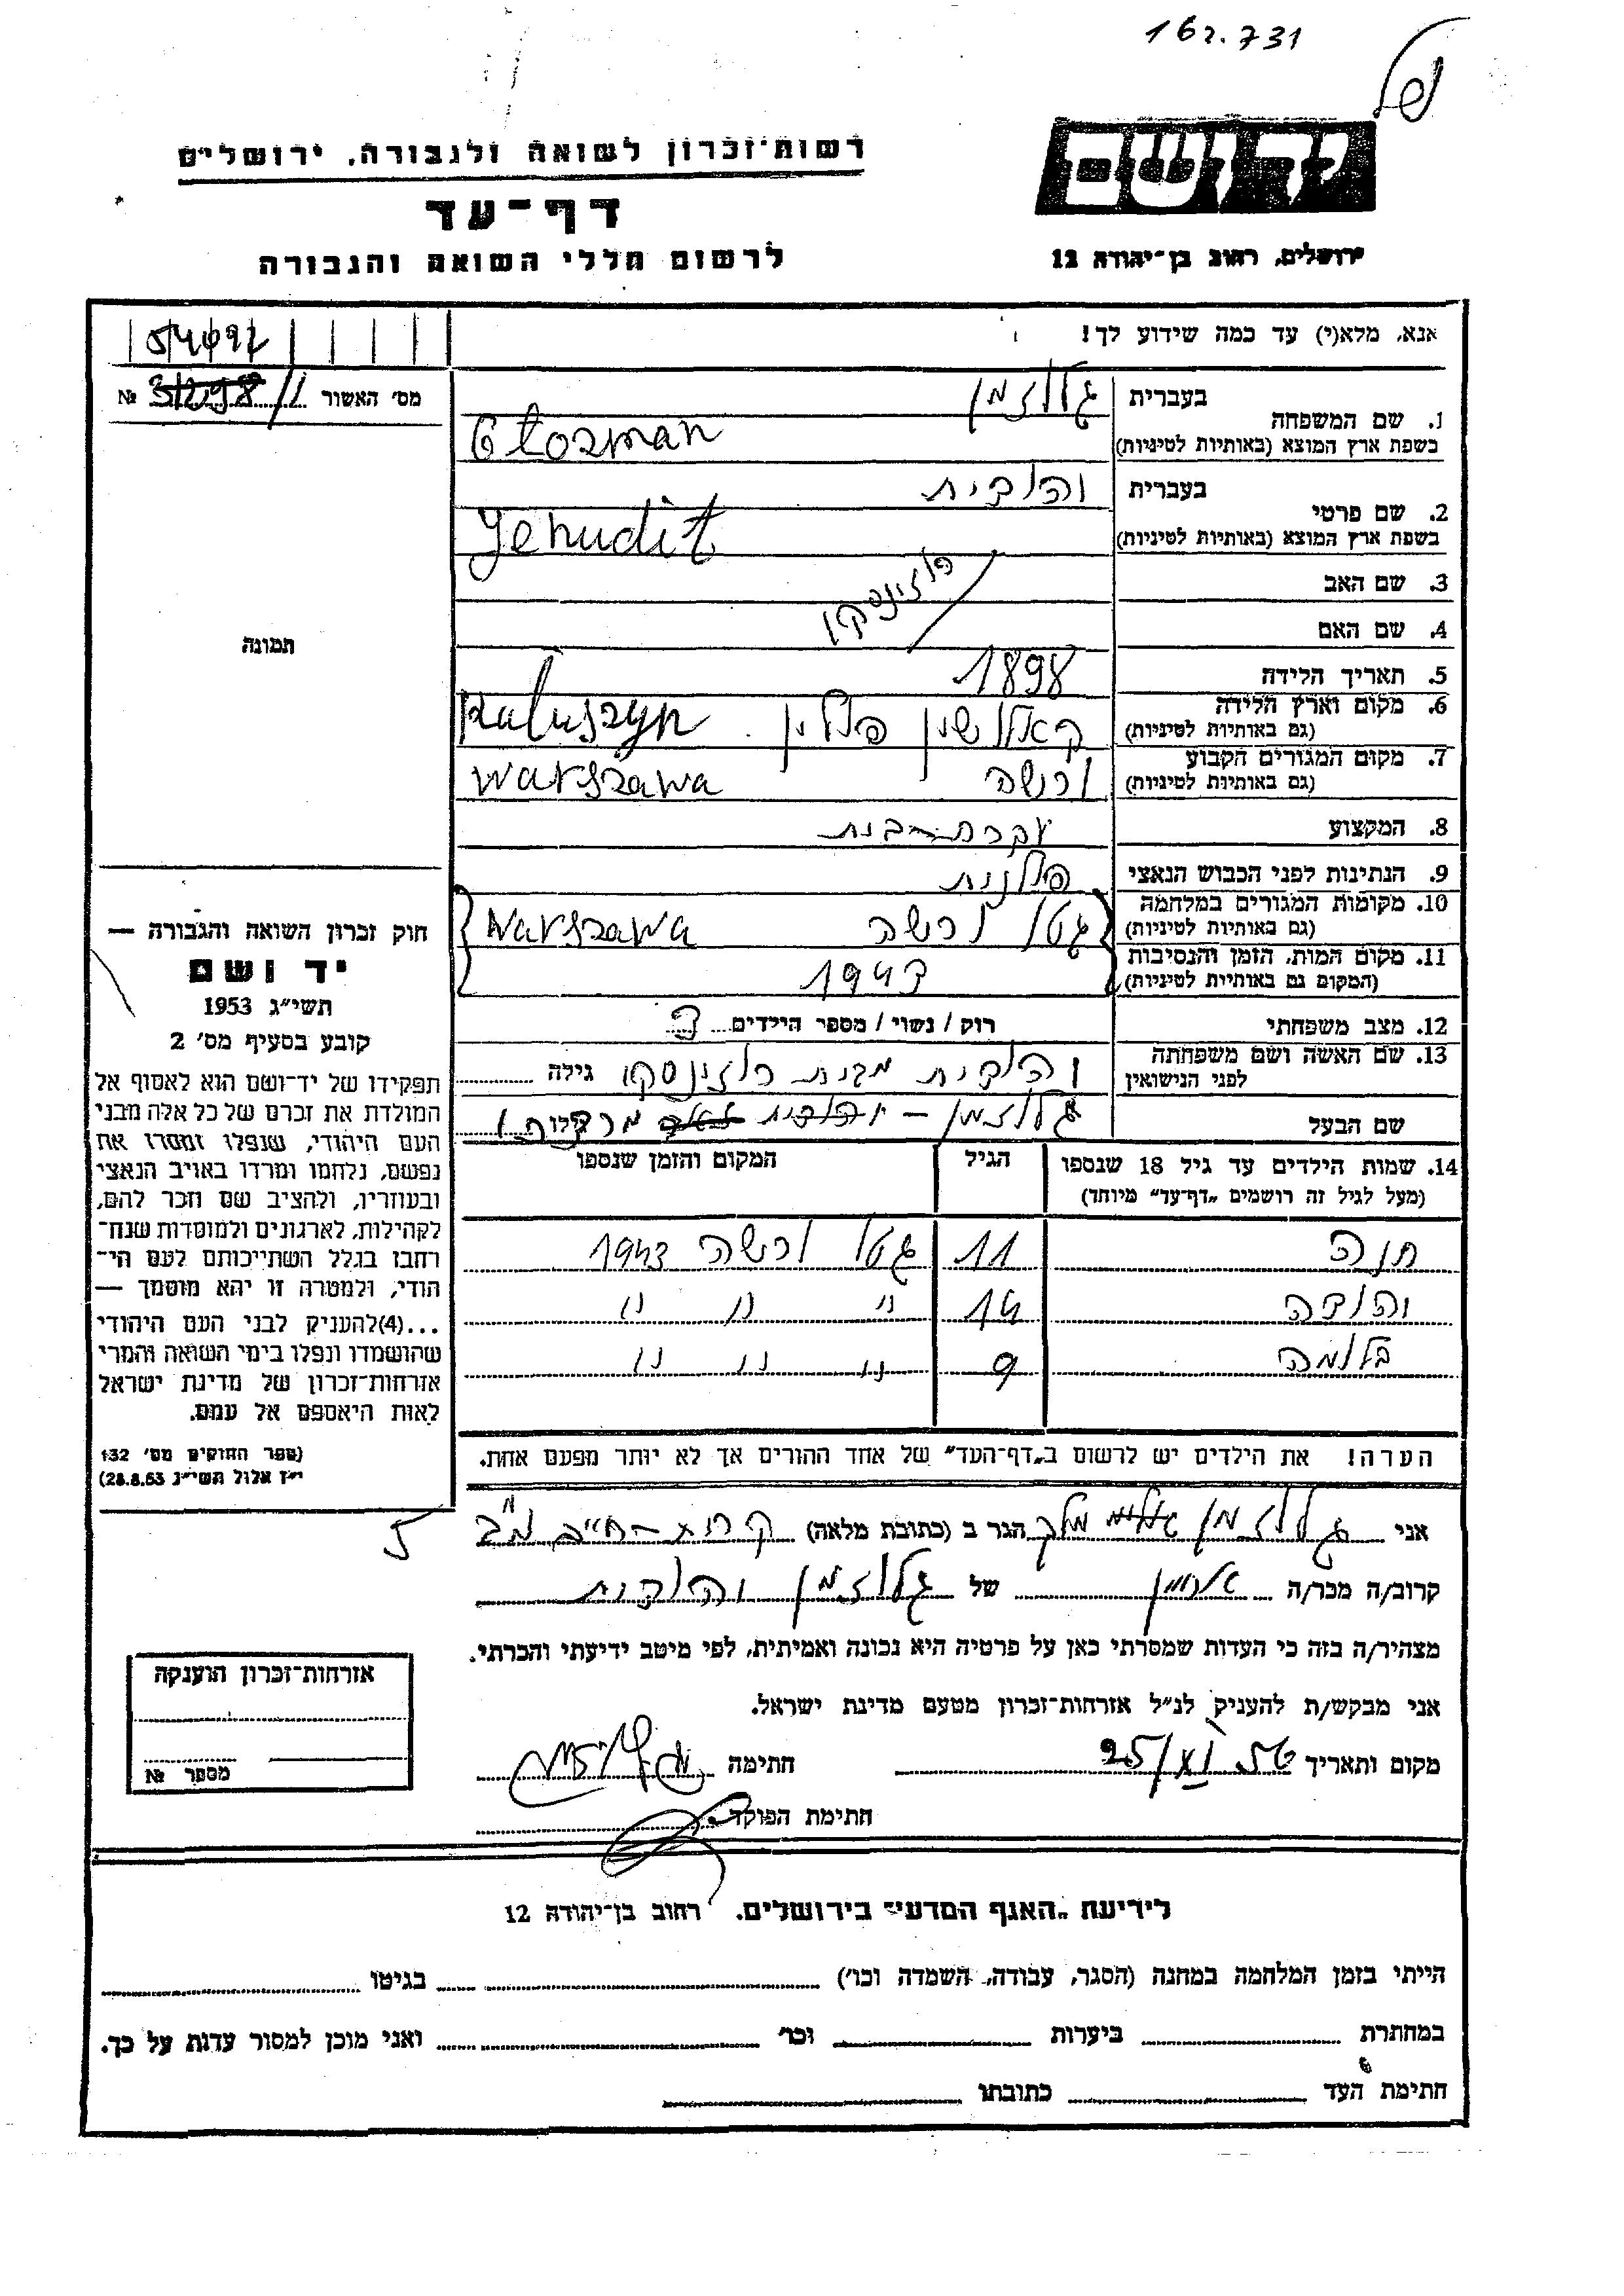 162.731
רשות־זכרון לשואה ולגבורה, ירושלים
דף־עד
לרשום חללי השואה והגבורה
יד ושם
ירושלים, רחוב בן־יהודה 12
אנא, מלא(י) עד כמה שידוע לך!
מס' האשור № 31298
1. שם המשפחה
בעברית גלוזמן
בשפת ארץ המוצא (באותיות לטיניות) Glozman
2. שם פרטי
בעברית יהודית
בשפת ארץ המוצא (באותיות לטיניות) Jehudit
3. שם האב
4. שם האם
5. תאריך הלידה 1898
6. מקום וארץ הלידה
(גם באותיות לטיניות) קאלושין פולין. Kaluszyn
7. מקום המגורים הקבוע
(גם באותיות לטיניות) ורשה Warszawa
8. המקצוע עקרת-בית
9. הנתינות לפני הכבוש הנאצי פולנית
10. מקומות המגורים במלחמה
(גם באותיות לטיניות) גטו ורשה Warszawa
11. מקום המות, הזמן והנסיבות
(המקום גם באותיות לטיניות) 1943
12. מצב משפחתי רוק / נשוי / מספר הילדים 3
13. שם האשה ושם משפחתה
לפני הנישואין יהודית מבית גילה
שם הבעל גלוזמן – מרדכי
14. שמות הילדים עד גיל 18 שנספו הגיל המקום והזמן שנספו
(מעל לגיל זה רושמים "דף־עד" מיוחד)
חנה 11 גטו ורשה 1943
יהודה 14 " " "
בלומה 9 " " "
הערה! את הילדים יש לרשום ב"דף־העד" של אחד ההורים אך לא יותר מפעם אחת.
תמונה
חוק זכרון השואה והגבורה —
יד ושם
תשי"ג 1953
קובע בסעיף מס' 2
תפקידו של יד־ושם הוא לאסוף אל
המולדת את זכרם של כל אלה מבני
העם היהודי, שנפלו ומסרו את
נפשם, נלחמו ומרדו באויב הנאצי
ובעוזריו, ולהציב שם וזכר להם,
לקהילות, לארגונים ולמוסדות שנח־
רבו בגלל השתייכותם לעם הי־
הודי, ולמטרה זו יהא מוסמך —
...(4)להעניק לבני העם היהודי
שהושמדו ונפלו בימי השואה והמרי
אזרחות־זכרון של מדינת ישראל
לאות היאספם אל עמם.
(ספר החוקים מס' 132
י"ז אלול תשי"ג 28.8.53)
אני גלוזמן אלימלך הגר ב (כתובת מלאה) קרית-חיים מ"ב
קרוב/ה מכר/ה של גלוזמן יהודית
מצהיר/ה בזה כי העדות שמסרתי כאן על פרטיה היא נכונה ואמיתית, לפי מיטב ידיעתי והכרתי.
אני מבקש/ת להעניק לנ"ל אזרחות־זכרון מטעם מדינת ישראל.
מקום ותאריך 25/XI 56. חתימה
חתימת הפוקד
אזרחות־זכרון הוענקה
מספר №
לידיעת "האגף המדעי" בירושלים. רחוב בן־יהודה 12
הייתי בזמן המלחמה במחנה (הסגר, עבודה, השמדה וכו') בגיטו
במחתרת ביערות וכו' ואני מוכן למסור עדות על כך.
חתימת העד כתובתו